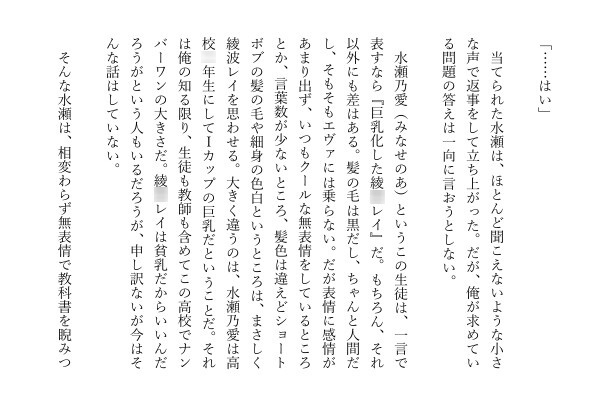 「……はい」
当てられた水瀬は、ほとんど聞こえないような小さ
な声で返事をして立ち上がった。だが、俺が求めてい
る問題の答えは一向に言おうとしない。
水瀬乃愛（みなせのあ）というこの生徒は、一言で
表すなら『巨乳化した綾レイ』だ。もちろん、それ
以外にも差はある。髪の毛は黒だし、ちゃんと人間だ
し、そもそもエヴァには乗らない。だが表情に感情が
あまり出ず、いつもクールな無表情をしているところ
とか、言葉数が少ないところ、髪色は違えどショート
ボブの髪の毛や細身の色白というところは、まさしく
綾波レイを思わせる。大きく違うのは、水瀬乃愛は高
校年生にしてＩカップの巨乳だということだ。それ
は俺の知る限り、生徒も教師も含めてこの高校でナン
バーワンの大きさだ。綾レイは貧乳だからいいんだ
ろうがという人もいるだろうが、申し訳ないが今はそ
んな話はしていない。
そんな水瀬は、相変わらず無表情で教科書を睨みつ